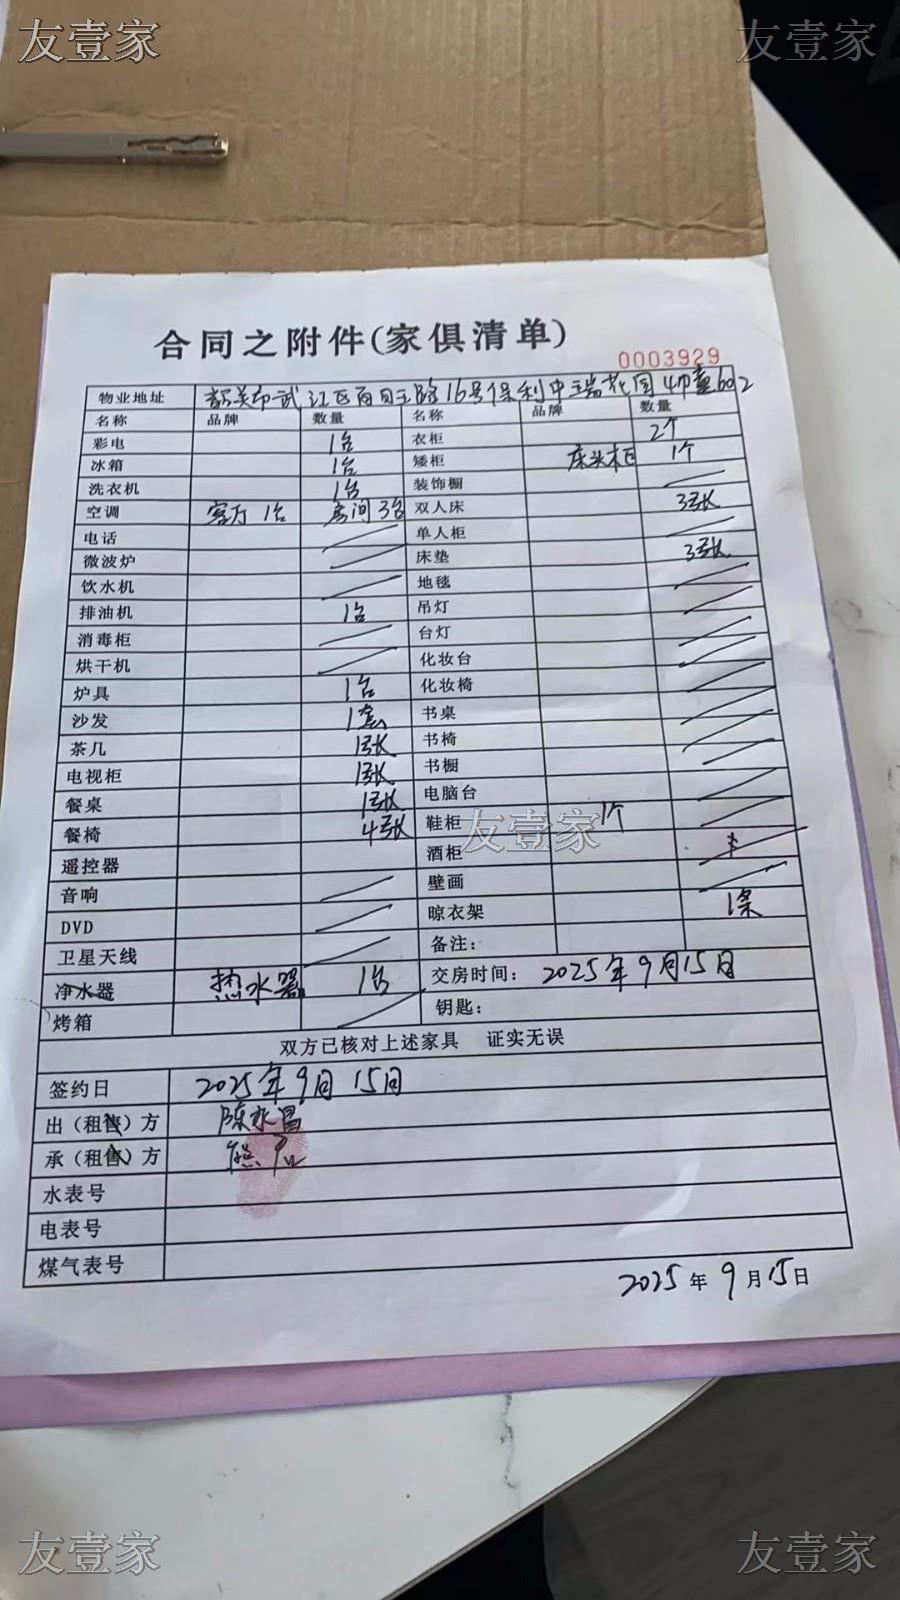 友壹家 友壹家
合同之附件(家俱清单)
0003929
物业地址 韶关市武江区百旺路16号保利中瑞花园4幢602
名称 品牌 数量 名称 品牌 数量
彩电 1台 衣柜 2个
冰箱 1台 矮柜 床头柜 1个
洗衣机 1台 装饰橱
空调 客厅1台 房间3台 双人床 3张
电话 单人柜
微波炉 床垫 3张
饮水机 地毯
排油机 1台 吊灯
消毒柜 台灯
烘干机 化妆台
炉具 1台 化妆椅
沙发 1套 书桌
茶几 1张 书椅
电视柜 1张 书橱
餐桌 1张 电脑台
餐椅 4张 鞋柜 1个
友壹家
遥控器 酒柜
音响 壁画
DVD 晾衣架 1条
卫星天线 备注:
净水器 热水器 1台 交房时间: 2025年9月15日
烤箱 钥匙:
双方已核对上述家具 证实无误
签约日 2025年9月15日
出(租售)方 陈永昌
承(租售)方 熊
水表号
电表号
煤气表号
2025年9月15日
友壹家 友壹家